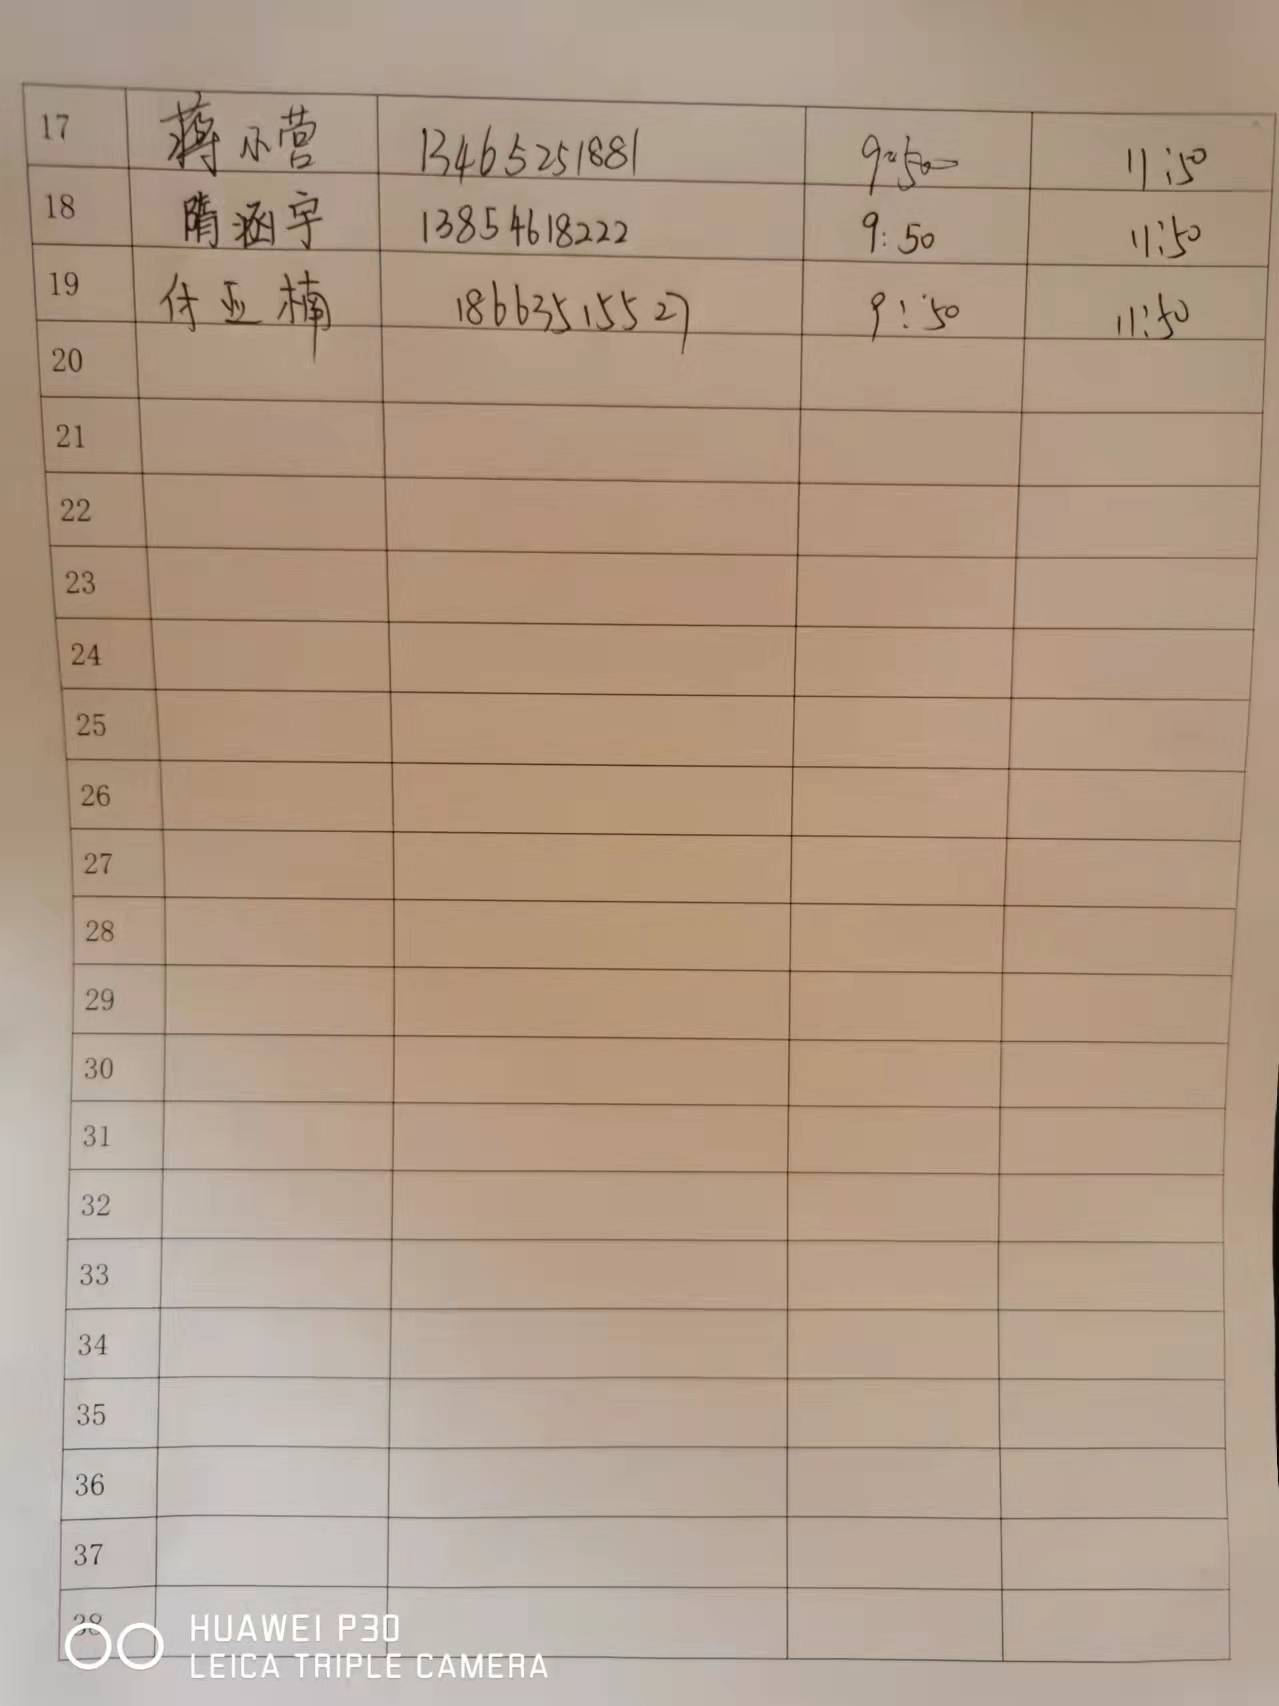 17 蒋小营 13465251881 9:50 11:50
18 隋涵宇 13854618222 9:50 11:50
19 付亚楠 18663515527 9:50 11:50
20
21
22
23
24
25
26
27
28
29
30
31
32
33
34
35
36
37
38
HUAWEI P30
LEICA TRIPLE CAMERA